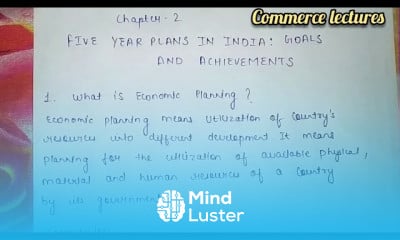 Commerce lectures
Chapter-2
FIVE YEAR PLANS IN INDIA: GOALS
AND ACHIEVEMENTS
1. What is Economic Planning?
Economic planning means utilization of country's
resources into different development. It means
planning for the utilization of available physical,
material and human resources of a country
by its government
Mind
Luster